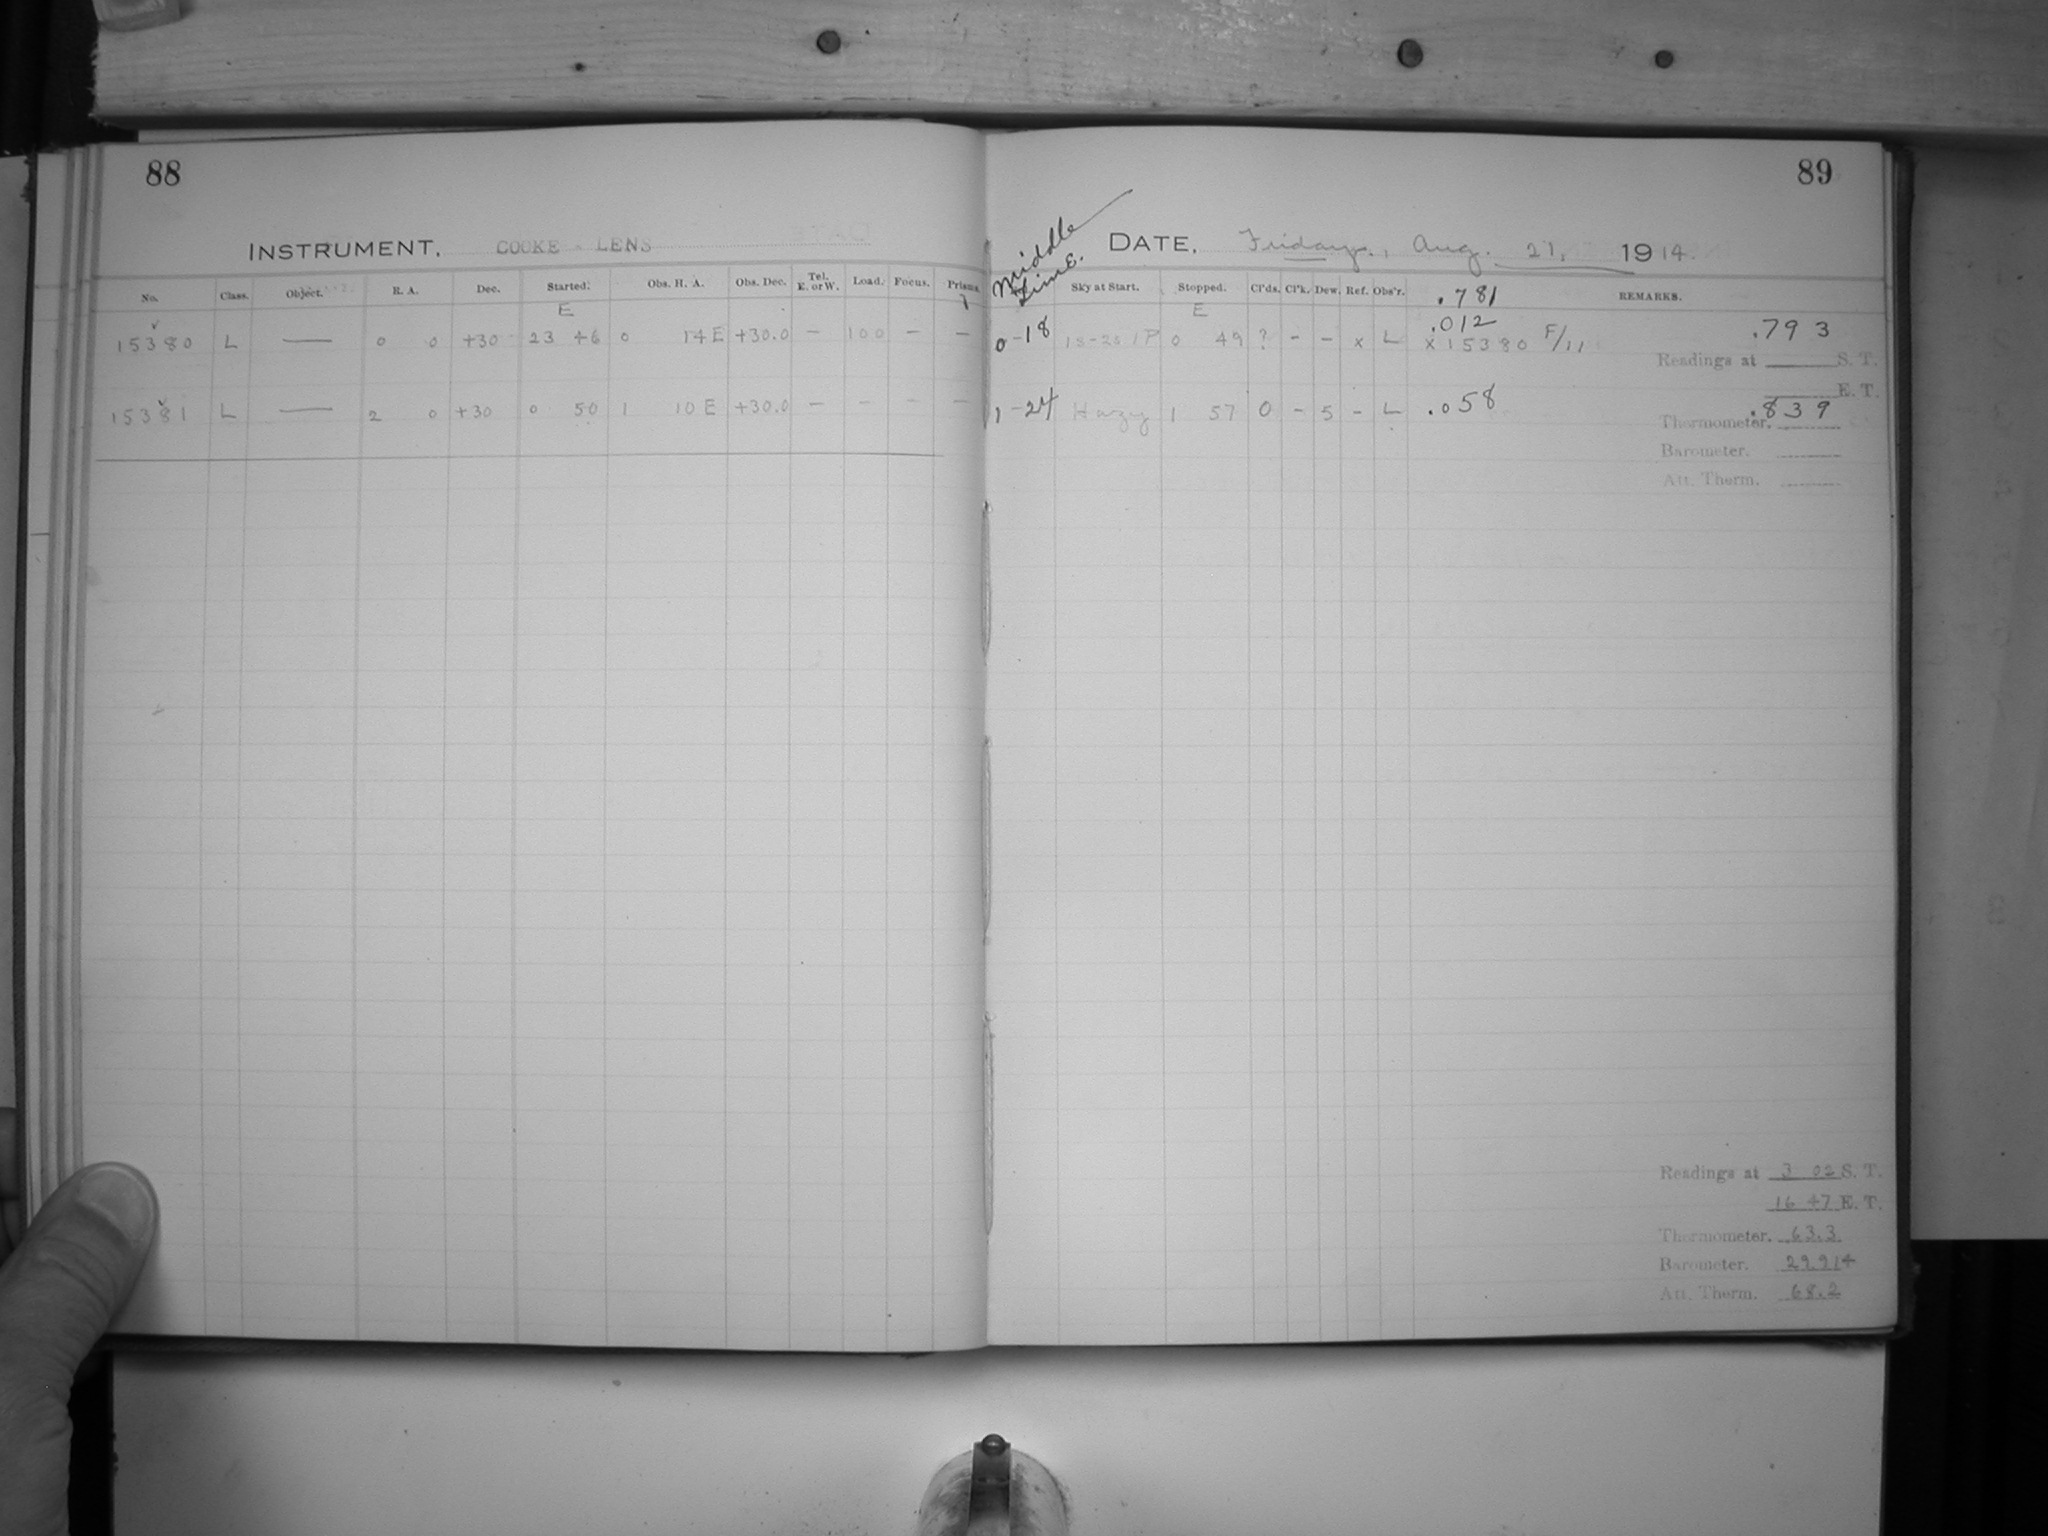 88
INSTRUMENT, COOKE - LENS
No. Class. Object. R. A. Dec. Started. Obs. H. A. Obs. Dec. Tel. E. or W. Load. Focus. Prisms.
E
15380 L — 0 0 +30 23 46 0 14 E +30.0 — 100 — —
15381 L — 2 0 +30 0 50 1 10 E +30.0 — — — —
89
Middle Time.
DATE, Friday, Aug. 21, 1914.
Sky at Start. Stopped. Cl'ds. Cl'k. Dew. Ref. Obs'r. .781 REMARKS.
E
.012 .793
0-18 1s-2s 1P 0 49 ? - - x L x 15380 F/11
Readings at S. T.
E. T.
1-24 Hazy 1 57 0 - 5 - L .058 .839
Thermometer.
Barometer.
Att. Therm.
Readings at 3 02 S. T.
16 47 E. T.
Thermometer. 63.3
Barometer. 29.914
Att. Therm. 68.2